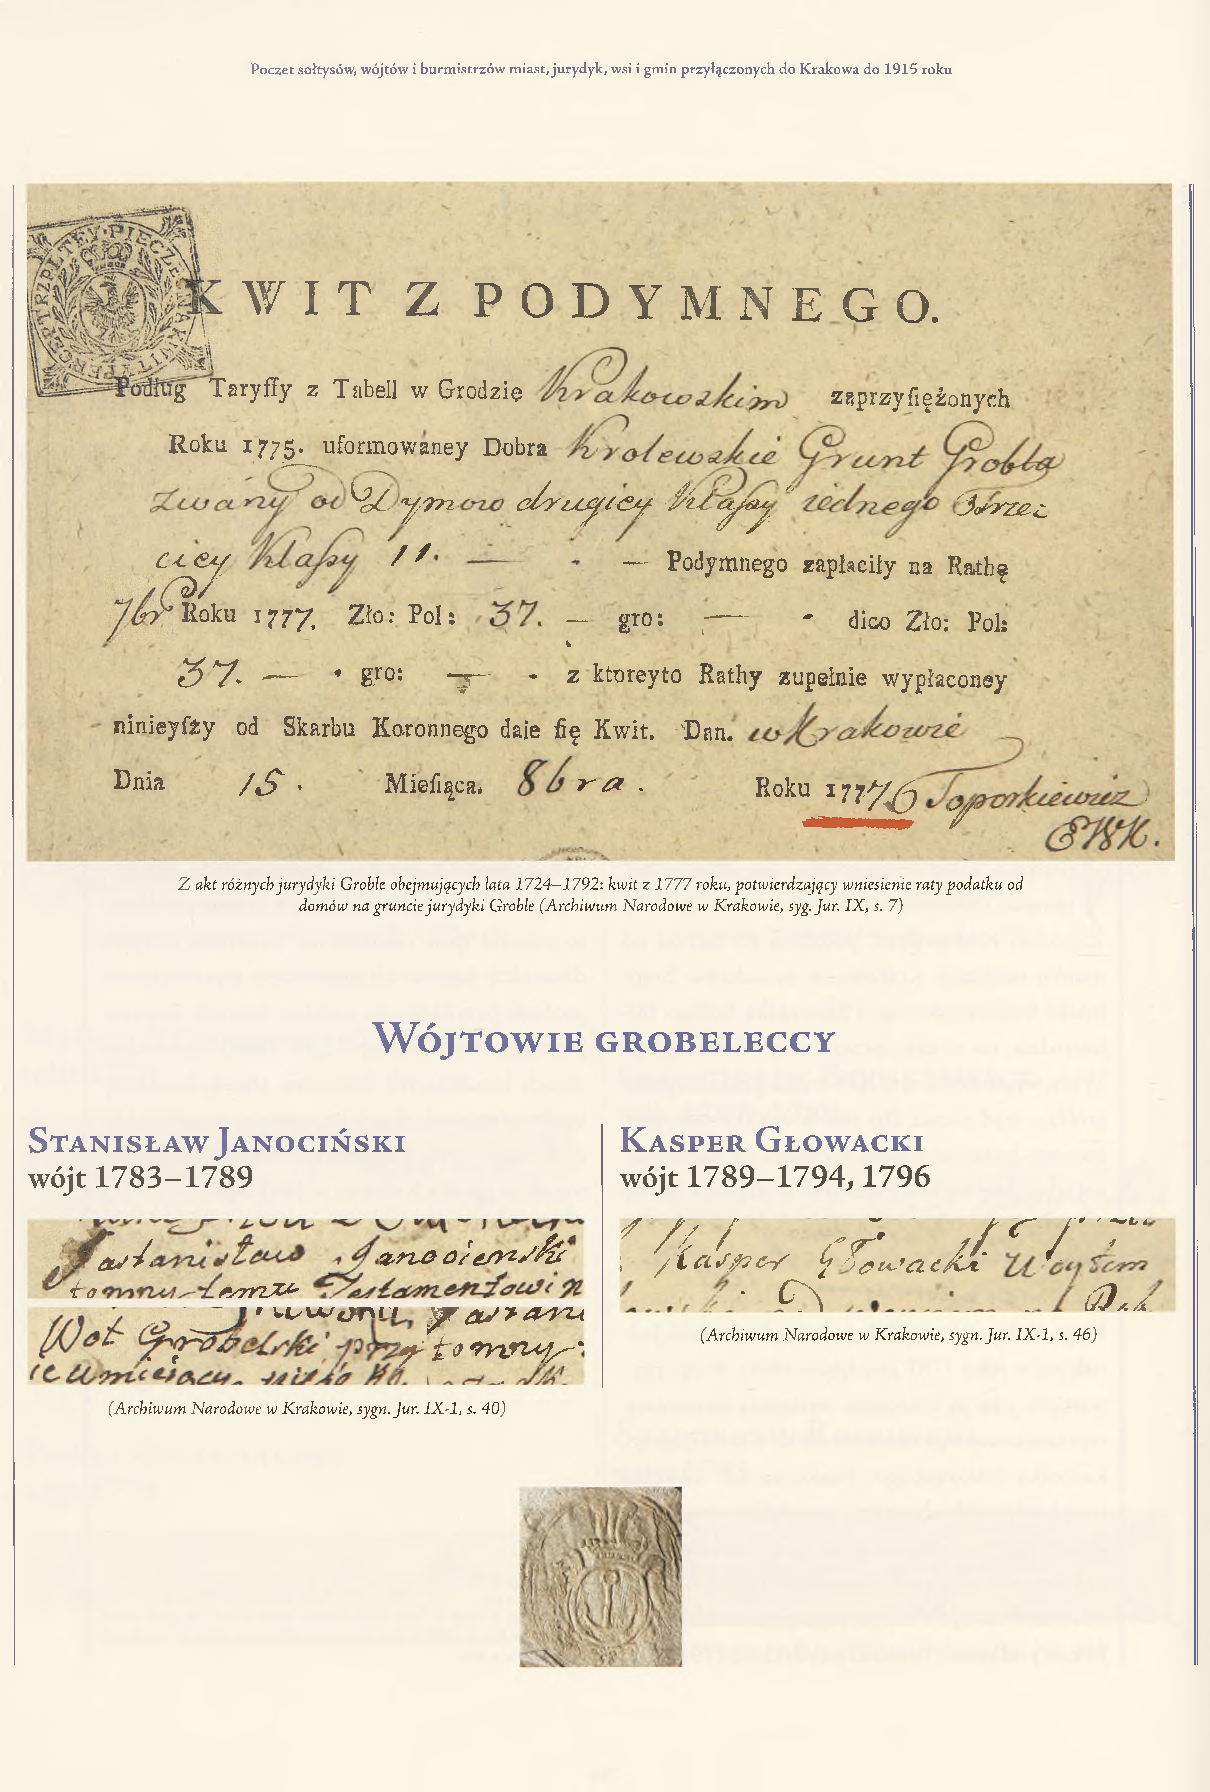 Poczet sołtysów, wójtów i burmistrzów miast, jurydyk, wsi i gmin przyłączonych do Krakowa do 1915 roku
KWIT Z PODYMNEGO.
Podług Taryffy z Tabell w Grodzie Krakowskim zaprzysiężonych
Roku 1775. uformowáney Dobra Krolewskie Grunt Grobla
zwany od Dymow drugiey Klassy iednego Trze
ciey Klassy 11. — — Podymnego zapłaciły na Rathę
7br Roku 1777. Zło: Pol: 37. — gro: — dico Zło: Pol:
37. — gro: — z ktoreyto Rathy zupełnie wypłaconey
ninieyszy od Skarbu Koronnego daie się Kwit. Dan. w Krakowie
Dnia 15. Miesiąca. 8bra. Roku 1777 Toporkiewicz
Z akt różnych jurydyki Groble obejmujących lata 1724–1792: kwit z 1777 roku, potwierdzający wniesienie raty podatku od
domów na gruncie jurydyki Groble (Archiwum Narodowe w Krakowie, syg. Jur. IX, s. 7)
Wójtowie grobeleccy
Stanisław Janociński
wójt 1783–1789
Ja Stanisław Janocienski
temu Testamentowi
Wot Grobelski przytomny
(Archiwum Narodowe w Krakowie, sygn. Jur. IX-1, s. 40)
Kasper Głowacki
wójt 1789–1794, 1796
Kasper Głowacki Woytem
(Archiwum Narodowe w Krakowie, sygn. Jur. IX-1, s. 46)